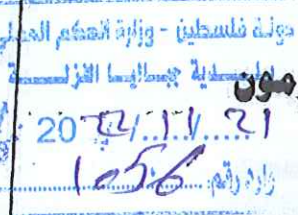 دولة فلسطين - وزارة الحكم المحلي
بلدية
مون
2022/11/21
وارد رقم: 1056